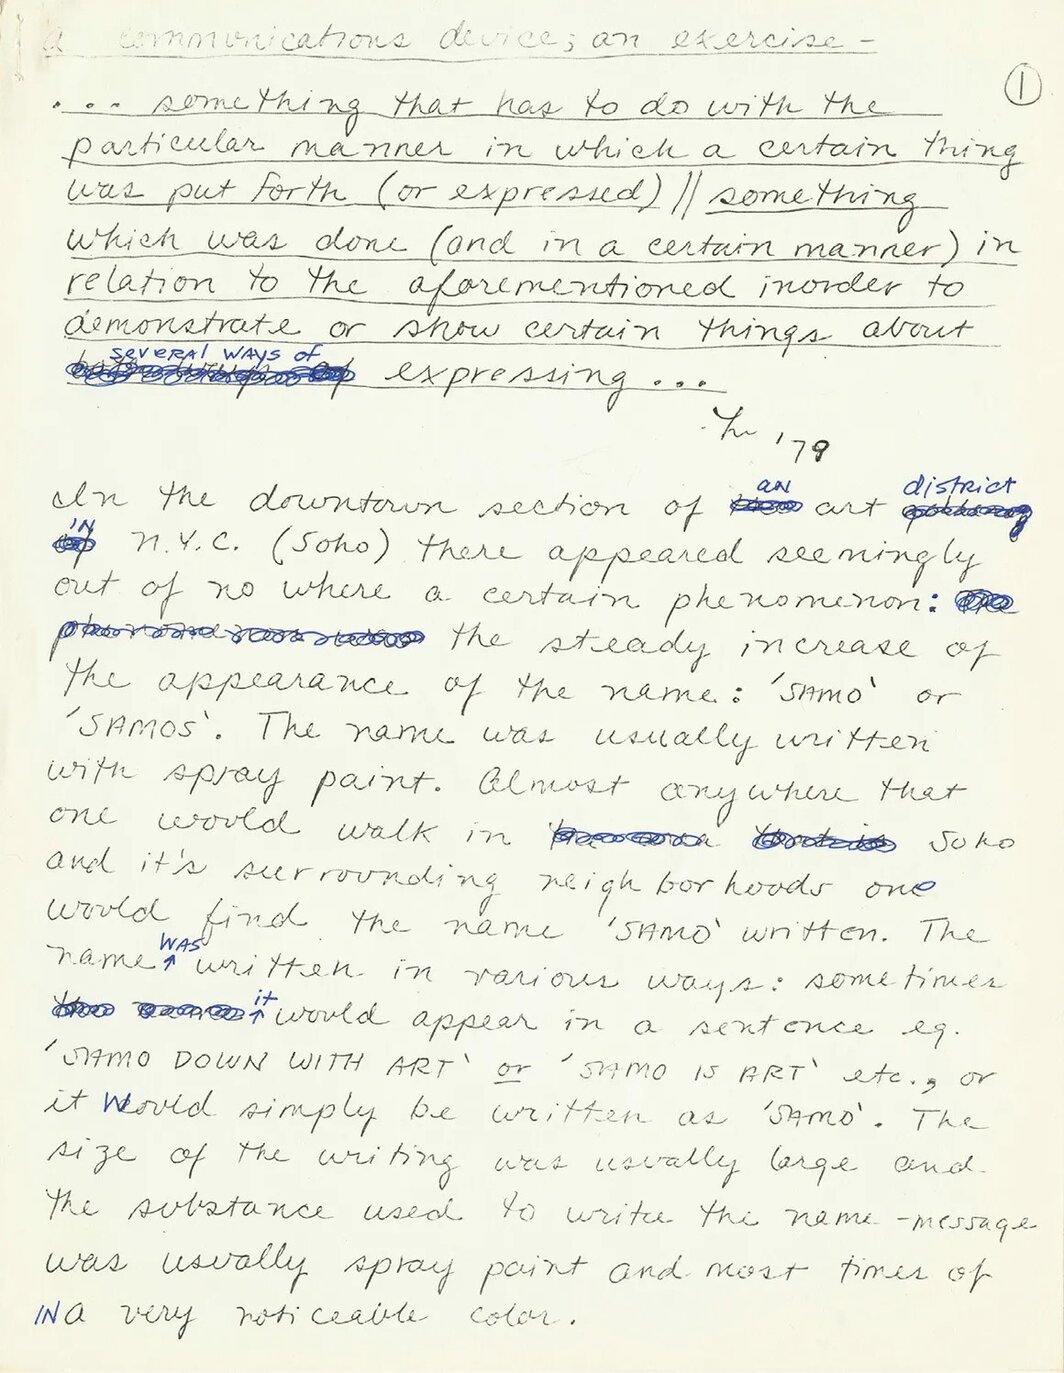 a communications device; an exercise -
1
... something that has to do with the
particular manner in which a certain thing
was put forth (or expressed) // something
which was done (and in a certain manner) in
relation to the aforementioned inorder to
demonstrate or show certain things about
several ways of
expressing ...
'79
In the downtown section of an art district
in N.Y.C. (Soho) there appeared seemingly
out of no where a certain phenomenon:
the steady increase of
the appearance of the name: 'SAMO' or
'SAMOS'. The name was usually written
with spray paint. Almost anywhere that
one would walk in Soho
and it's surrounding neighborhoods one
would find the name 'SAMO' written. The
name was written in various ways: sometimes
it would appear in a sentence eg.
'SAMO DOWN WITH ART' or 'SAMO IS ART' etc., or
it would simply be written as 'SAMO'. The
size of the writing was usually large and
the substance used to write the name-message
was usually spray paint and most times of
IN a very noticeable color.